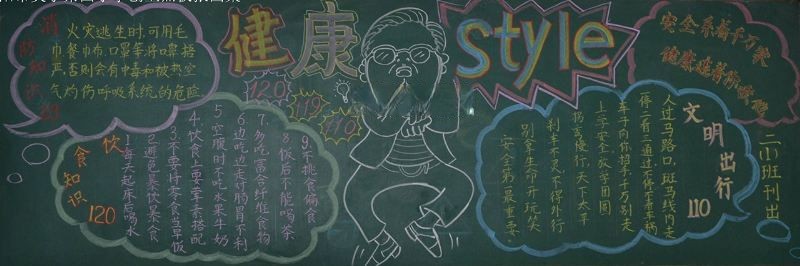 消防知识
火灾逃生时,可用毛
巾餐巾布、口罩等将口鼻捂
严,否则会有中毒和被热空
气灼伤呼吸系统的危险
健康 style
120
119
110
安全系着千万家
健康连着你我他
饮食知识
120
1.每天起床后喝水
2.避免暴饮暴食
3.不要将零食当早饭
4.饮食上要荤素搭配
5.空腹时不吃水果牛奶
6.边吃边走对肠胃不利
7.多吃富含纤维食物
8.饭后不能喝茶
9.不挑食偏食
文明出行
110
人过马路口,斑马线内走
一停二看三通过,不停不看车辆
车子向你招手,千万别走
上学安全,放学团圆
拐弯慢行,天下太平
刹车不灵,不得外行
别拿生命开玩笑
安全第一最重要
二小班刊出